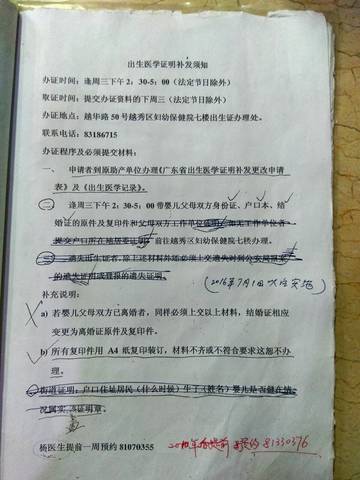 出生医学证明补发须知
办证时间：逢周三下午2：30-5：00（法定节日除外）
取证时间：提交办证资料的下周三（法定节日除外）
办证地点：越华路50号越秀区妇幼保健院七楼出生证办理处。
联系电话：83186715
办证程序及必须提交材料：
一、申请者到原助产单位办理《广东省出生医学证明补发更改申请
表》及《出生医学记录》。
二、逢周三下午2：30-5：00带婴儿父母双方身份证、户口本、结
婚证的原件及复印件和父母双方工作单位证明，如无工作单位者
提交户口所在地居委证明，前往越秀区妇幼保健院七楼办理。
三、遗失出生证者，除上述材料外还必须上交遗失时到公安局报案
的遗失证明或登报的遗失证明。
（2016年7月1日以后实施）
补充说明：
a) 若婴儿父母双方已离婚者，同样必须上交以上材料，结婚证相应
变更为离婚证原件及复印件。
b) 所有复印件用A4纸复印装订，材料不齐或不符合要求这恕不办
理。
街道证明：户口住址居民（什么时候）生了（姓名）婴儿是否健在情
况属实 证明章。
杨医生提前一周预约81070355
预约 81330376